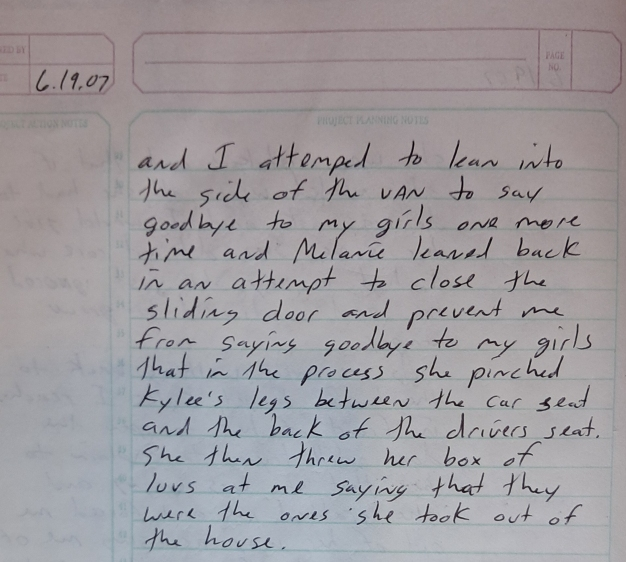 6.19.07
PAGE
NO.
PROJECT PLANNING NOTES
and I attemped to lean into
the side of the VAN to say
goodbye to my girls one more
time and Melanie leaned back
in an attempt to close the
sliding door and prevent me
from saying goodbye to my girls
that in the process she pinched
Kylee's legs between the car seat
and the back of the drivers seat.
She then threw her box of
luvs at me saying that they
were the ones she took out of
the house.